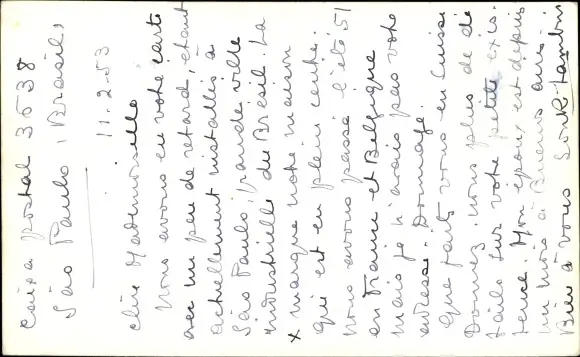 Caixa postal 3538
São Paulo, (Brasil)
11.2.53
Chère Mademoiselle
Nous avons eu votre carte
avec un peu de retard, étant
actuellement installés à
São Paulo grande ville
industrielle du Brésil. La
x marque notre maison
qui est en plein centre.
Nous avons passé l'été 51
en France et Belgique
mais je n'avais pas votre
adresse. Dommage.
Que faites vous en Suisse
Donnez nous plus de dé
tails sur votre petite exis.
tence. Mon époux est depuis
un mois à Buenos aires.
Bien à vous